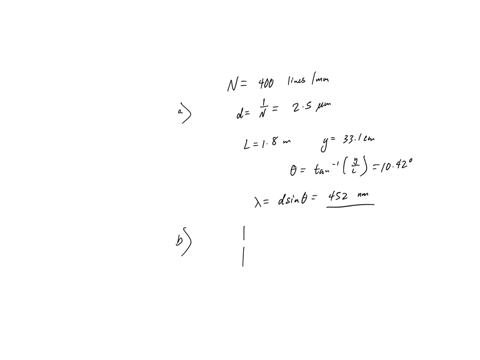 N = 400 lines/mm
a) d = 1/N = 2.5 μm
L = 1.8 m y = 33.1 cm
θ = tan⁻¹(y/L) = 10.42°
λ = d sinθ = 452 nm
b)